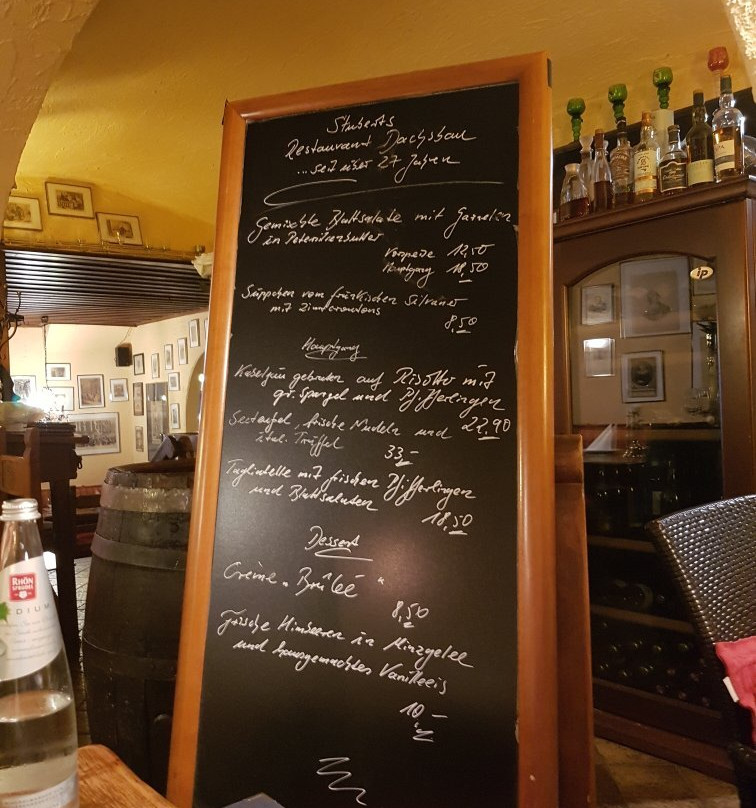 Stuberts
Restaurant Dachsbau
... seit über 27 Jahren
Gemischte Blattsalate mit Garnelen
in
Vorspeise 12,50
Hauptgang 18,50
Süppchen vom fränkischen Silvaner
mit Zimtcroutons
8,50
Hauptgang
gebraten auf Risotto mit
gr. Spargel und Pfifferlingen
22,90
Seeteufel, frische Nudeln und
ital. Trüffel
33,-
Tagliatelle mit frischen Pfifferlingen
und Blattsalaten
18,50
Dessert
Crème "Brûlée"
8,50
Frische Himbeeren in Minzgelee
und hausgemachtes Vanilleeis
10,-
RHÖN
SPRUDEL
DIUM
ip